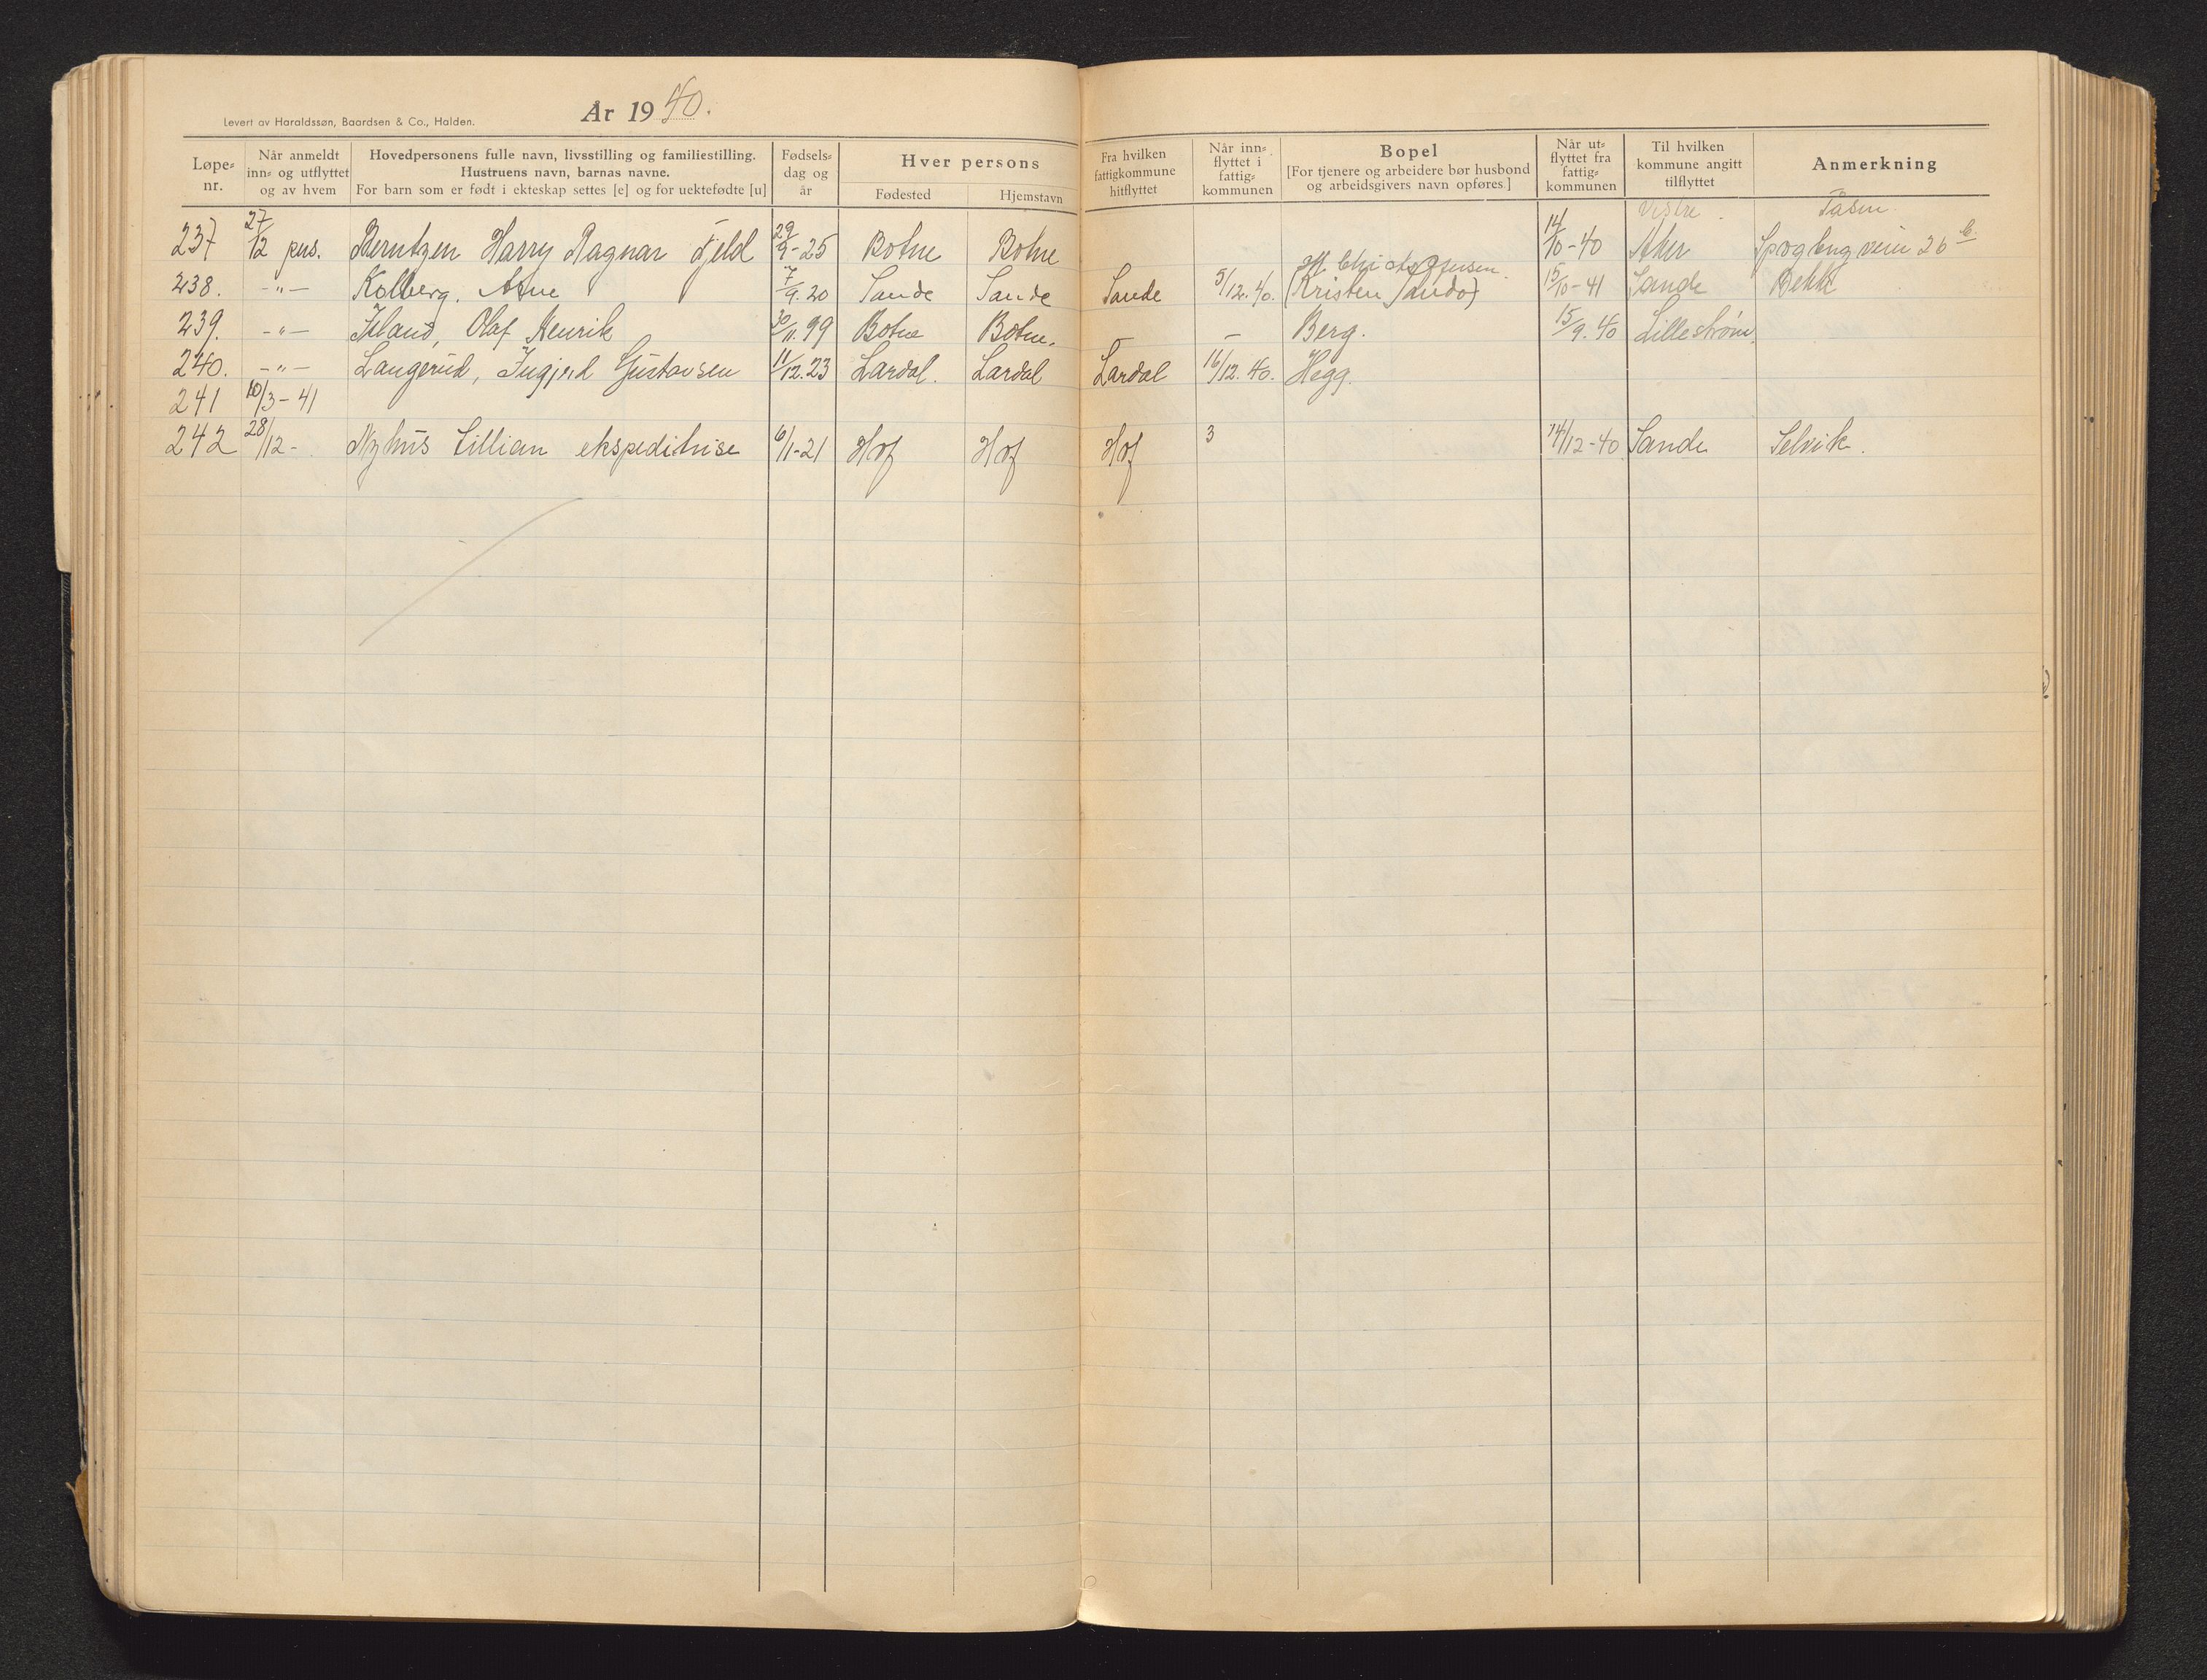 Levert av Haraldssøn, Baardsen & Co., Halden.
År 1940.
Løpe-nr.
Når anmeldt inn- og utflyttet og av hvem
Hovedpersonens fulle navn, livsstilling og familiestilling.
Hustruens navn, barnas navne.
For barn som er født i ekteskap settes [e] og for uektefødte [u]
Fødsels-dag og år
Hver persons
Fødested
Hjemstavn
Fra hvilken fattigkommune hitflyttet
Når inn-flyttet i fattig-kommunen
Bopel
[For tjenere og arbeidere bør husbond og arbeidsgivers navn opføres]
Når ut-flyttet fra fattig-kommunen
Til hvilken kommune angitt tilflyttet
Anmerkning
Vestre Tåsen
237 27/12 pers. Berntzen Harry Ragnar Fjeld 29/9-25 Botne Botne 14/10-40 Aker 26 b.
238. -"- Kolberg, Arne 7/9.20 Sande Sande Sande 5/12.40. (Kristen Sando) 15/10-41 Sande Bekk
239. -"- Island, Olaf Henrik 30/11.99 Botne Botne. — — Berg. 15/9.40 Lillestrøm.
240. -"- Langerud, Ingjerd Gustavsen 11/12.23 Lardal. Lardal Lardal 16/12.40. Hegg.
241 10/3-41
242 28/12- Nyhus Lillian ekspeditrise 6/1-21 Hof Hof Hof 3 14/12-40 Sande Selvik.